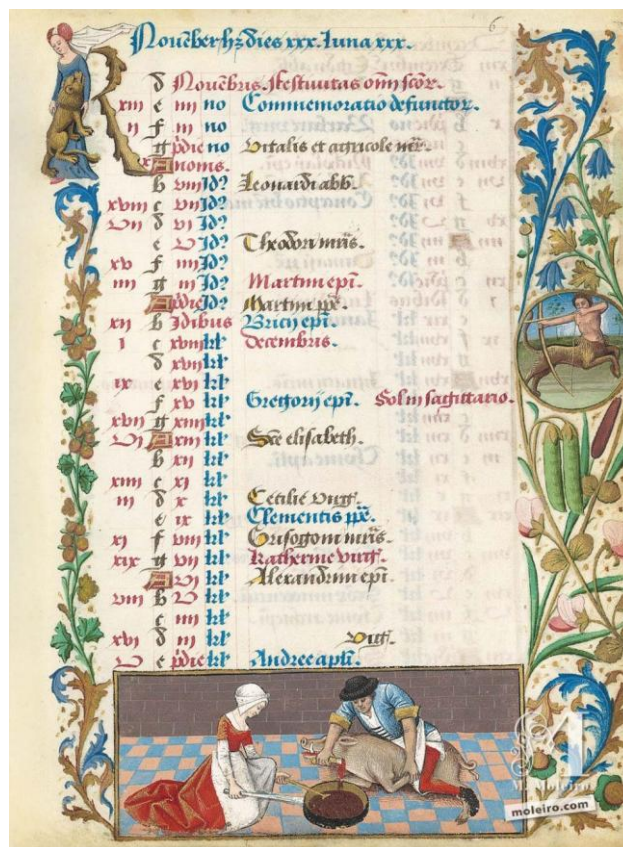 6
Nouẽber hȝ dies xxx. luna xxx.
R
d Nouẽbris. Festiuitas om̃ scõr.
xiii e iiii no Commemoratio defunctor.
ii f iii no
g p̃die no Vitalis et agricole mr̃.
x A nonis.
b viii Id9 Leonardi abb.
xviii c vii Id9
vii d vi Id9
e v Id9 Theodori mr̃is.
xv f iiii Id9
iiii g iii Id9 Martini ep̃i.
A p̃die Id9 Martini pp̃e.
xii b Idibus Bricij ep̃i.
i c xviii kl' decembris.
d xvii kl'
ix e xvi kl'
f xv kl' Gregorij ep̃i. Sol in sagittario.
xvii g xiiii kl'
vi A xiii kl' Sc̃e elisabeth.
b xii kl'
xiiii c xi kl'
iii d x kl' Cecilie virg̃.
e ix kl' Clementis pp̃e.
xi f viii kl' Grisogoni mr̃is.
xix g vii kl' Katherine virg̃.
A vi kl' Alexandrini ep̃i.
viii b v kl'
c iiii kl'
xvi d iii kl' Vig̃.
v e p̃die kl' Andree ap̃li.
M. Moleiro
moleiro.com